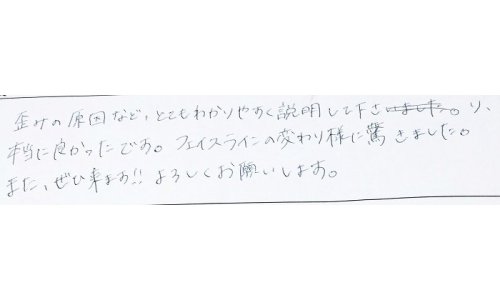 歪みの原因など、とてもわかりやすく説明して下さり、
本当に良かったです。フェイスラインの変わり様に驚きました。
また、ぜひ来ます!!よろしくお願いします。